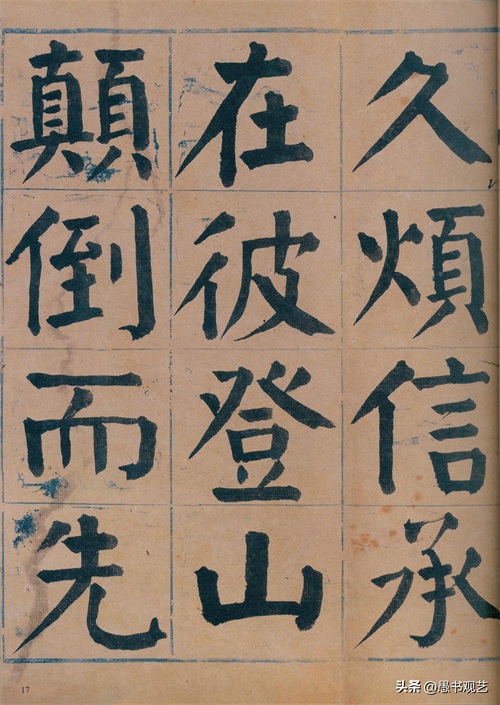 久煩信承
在彼登山
顛倒而先
17
头条 @愚书观艺